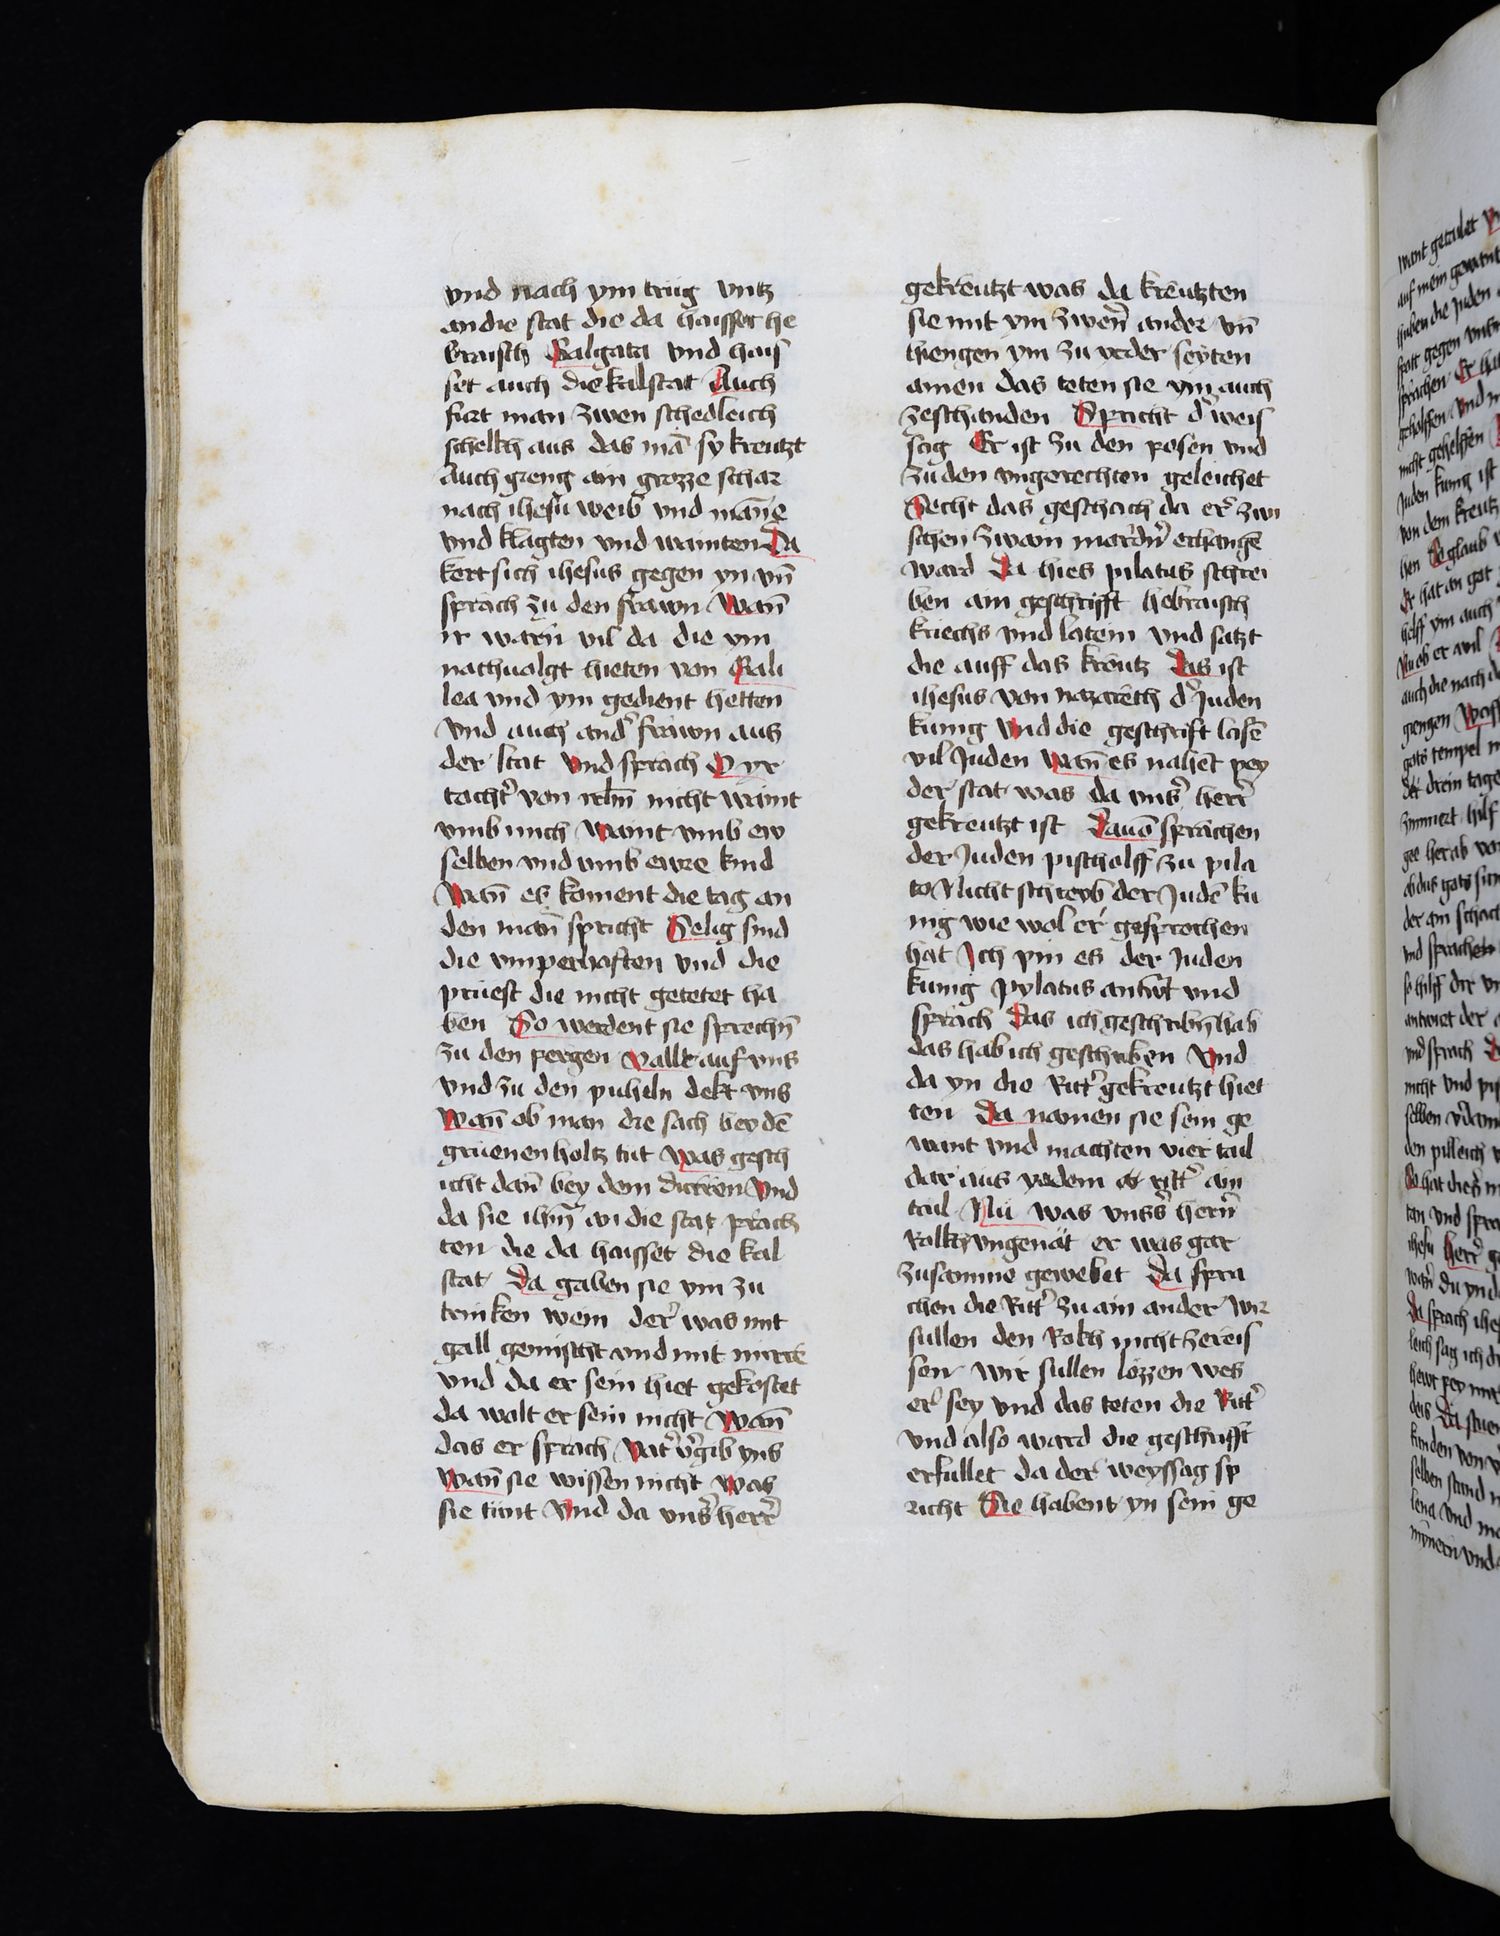 vnd nach ym trug vntz
an die stat die da haisset he
braisch Galgata vnd hais
set auch die kalstat Auch
furt man zwen schedleich
schelkh aus das mā sy kreutzt
Auch gieng ain grozze schar
nach ihesu weib vnd man̄e
vnd klagten vnd wainten Da
kert sich ihesus gegen yn vn̄
sprach zu den frawn Wan̄
ir warn̄ vil da die ym
nachuolgt hieten von Gali
lea vnd ym gedient hetten
vnd auch and̓ frawn aus
der stat vnd sprach O yr
tocht̓ von irl̄m nicht waint
vmb mich waint vmb ew
selben vnd vmb ewre kind
Wan̄ es koment die tag an
den man̄ spricht Selig sind
die vnperhaften vnd die
pruest die nicht getetet ha
ben So werdent sie sprechn̄
zu den pergen vallt auf vns
vnd zu den puheln dekt vns
Wan̄ ob man die sach bey dē
gruenen holtz tut was gesch
icht dan̄ bey dem durren vnd
da sie ihm̄ an die stat prach
ten die da haisset die kal
stat Da gaben sie ym zu
trinken wein der̓ was mit
gall gemischt vnd mit mirrē
vnd da er sein hiet gekostet
da wolt er sein nicht Wan̄
das er sprach vat̓ v̓gib yns
Wan̄ sie wissen nicht was
sie tunt vnd da vns̓ herr̓
gekreutzt was da kreutzten
sie mit ym zwen̓ ander vn̄
hiengen ym zu yeder seyten
ainen das teten sie ym auch
zeschanden Spricht d̓ weis
sag Er ist zu den posen vnd
zu den vngerechten geleichet
Secht das geschach da er̓ zwi
schen zwain mord̓n̓ erhangē
ward Da hies pilatus schrei
ben ain geschrifft hebraisch
kriechs vnd latein vnd satzt
die auff das kreutz Das ist
ihesus von nazareth d̓ Juden
kunig vnd die geschrift lasē
vil Juden wan̄ es nahet pey
der stat was da vns̓ herr̓
gekreutzt ist Dauō sprachen
der Juden pischolff zu pila
to Nicht schreyb der Judē ku
nig wie wol er gesprochen
hat Ich pin es der Juden
kunig pylatus antw̓t vnd
sprach Das ich geschribn̄ hab
das hab ich geschriben vnd
da yn die Ritt̓ gekreutzt hiet
ten Da namen sie sein ge
want vnd machten vier tail
dar aus yedem ritt̓ ain
tail Nu was vns̓s hern̓
Rokh vngenat er was gar
zusamme gewebet Da spra
chen die Ritt̓ zu ain ander wir
sullen den Rokh nicht zereis
sen wir sullen lozzen wes
er̓ sey vnd das teten die Ritt̓
vnd also ward die geschrifft
erfullet da der weyssag sp
richt Sie habent yn sein ge